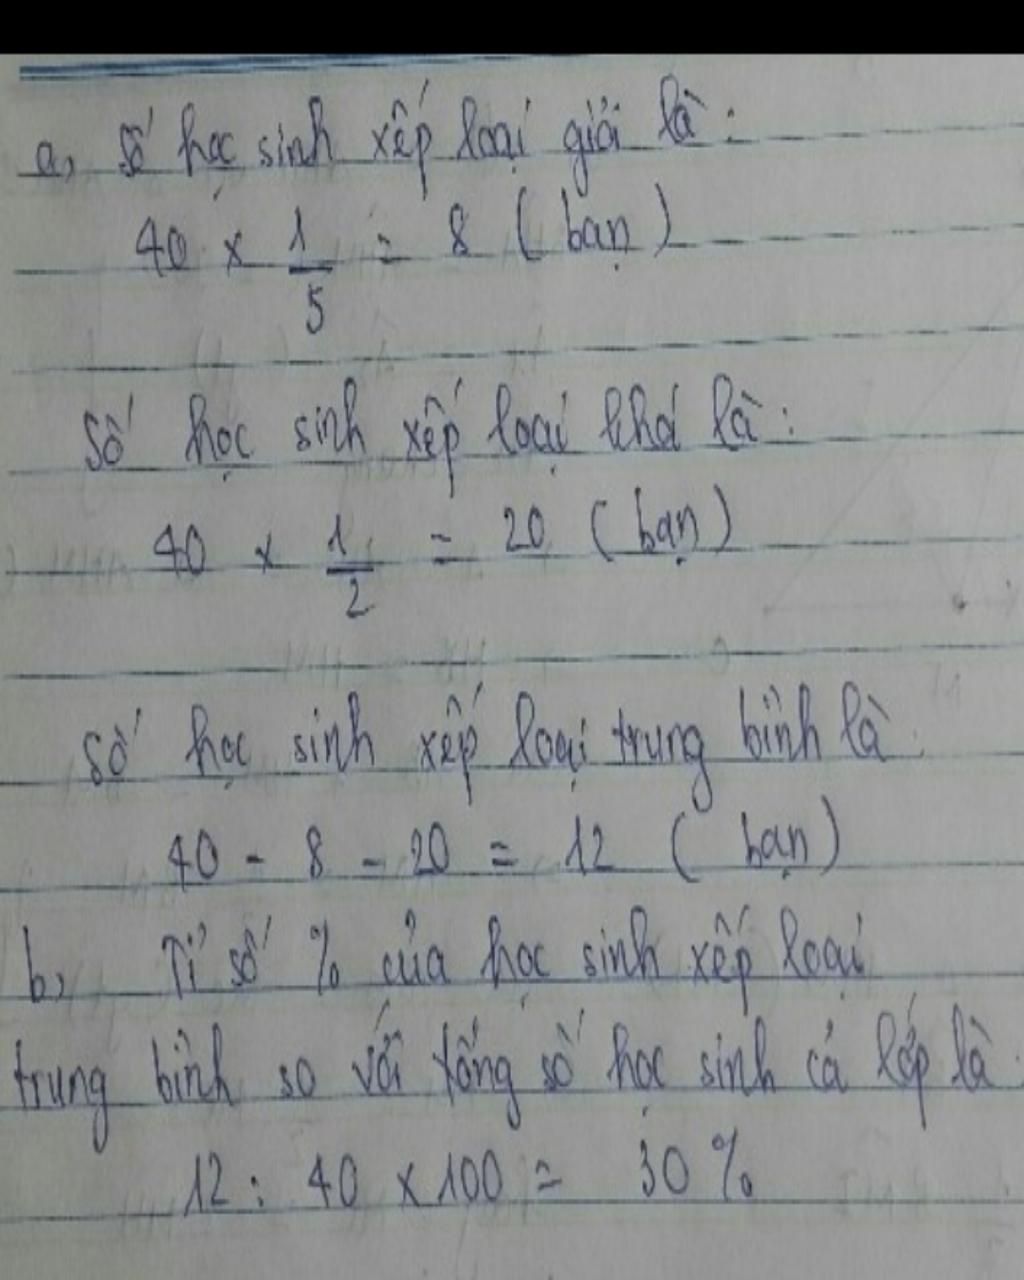 a, Số học sinh xếp loại giỏi là:
40 × 1/5 = 8 (bạn)
Số học sinh xếp loại khá là:
40 × 1/2 = 20 (bạn)
Số học sinh xếp loại trung bình là:
40 - 8 - 20 = 12 (bạn)
b, Tỉ số % của học sinh xếp loại
trung bình so với tổng số học sinh cả lớp là:
12 : 40 × 100 = 30 %